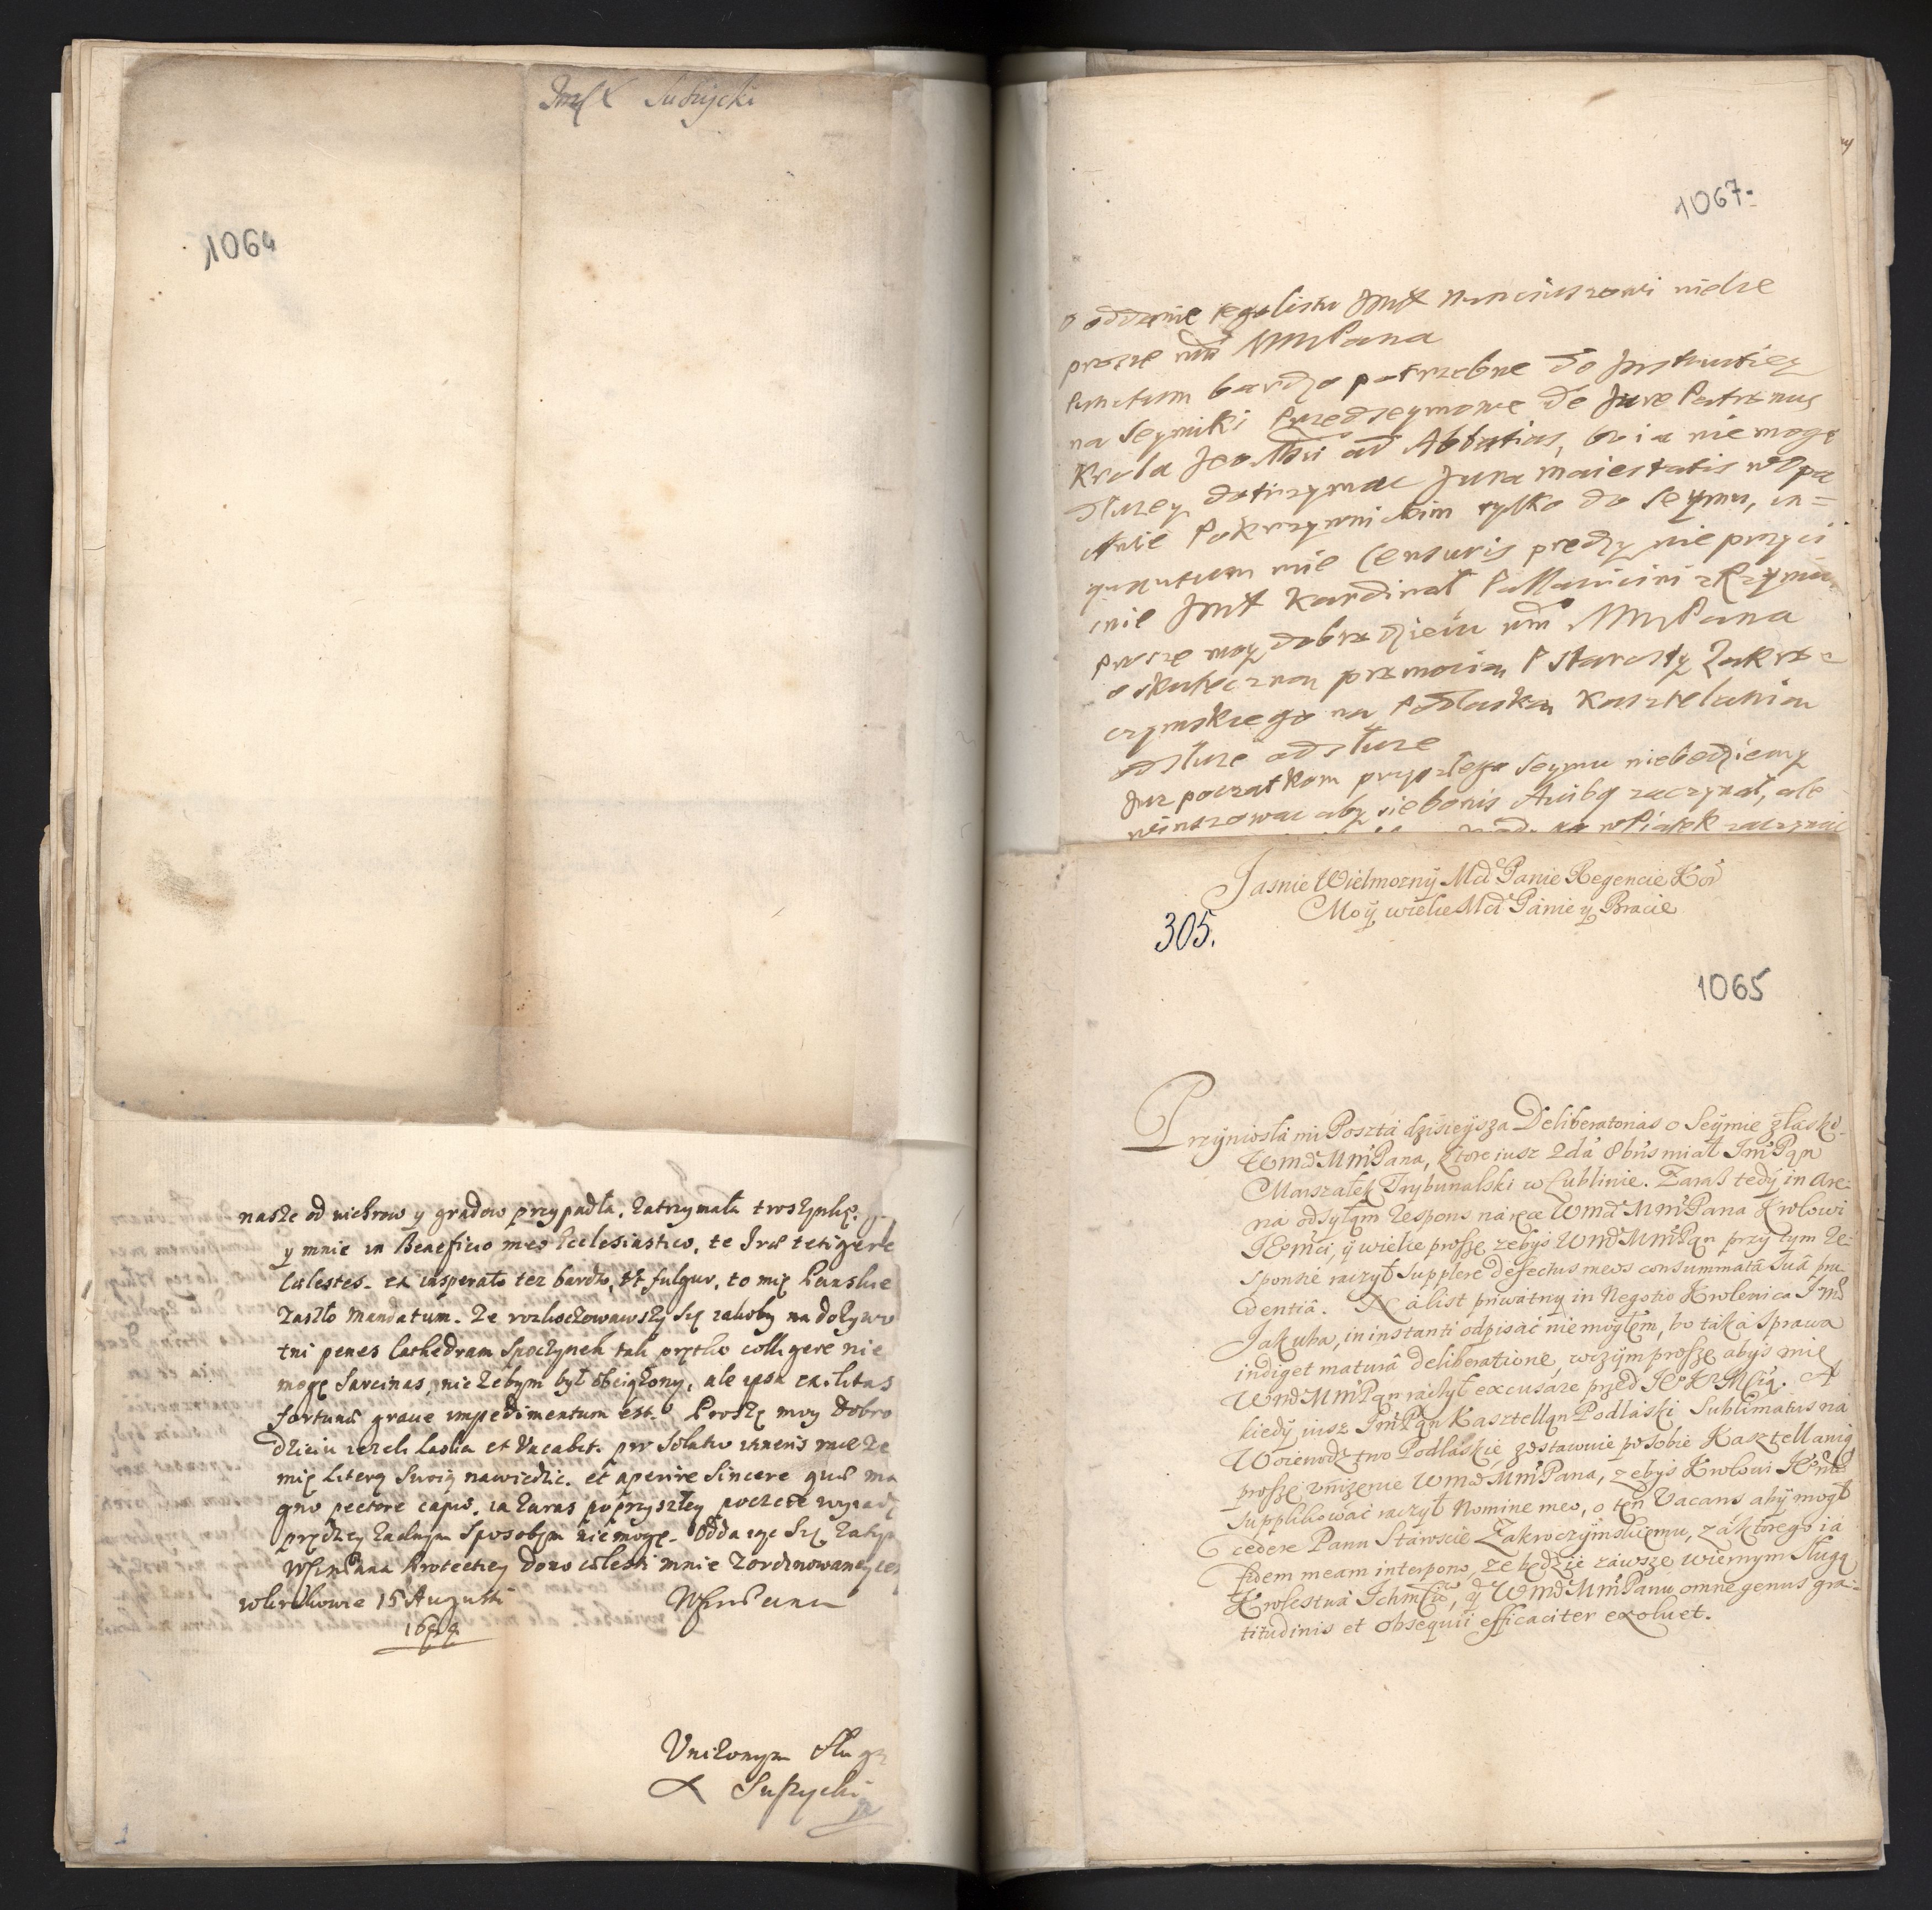 ImX Suszycki
1064
nasze od wichrow y gradow przypadła, zatrzymała troszynkę.
y mnie in Beneficio meo Ecclesiastico, te Iræ tetigere
Cælestes. et insperato tez bardzo, Vt fulgur, to mię Panskie
zaszło Mandatum. Ze rozkoczowawszy Się zakoby na dozywo
tni penes Cathedram Spoczynek tak prętko colligere nie
mogę Sarcinas, nie żebym był obciążony, ale ipsa exilitas
fortunæ graue impedimentum est. Proszę moy Dobro
dzieiu iezeli Laska et Vacabit. pro Solatio itineris racz że
mię Literą Swoią nawiedzic. et aperire Sincere quid ma
gno pectore capis. ia zaraz po przyszłey poczcie wyiadę
prędzey zadnym Sposobem nie mogę. Oddaięc Się zatym
WMMPana Protectiey dono cœlesti mnie zordinowaney
w Krakowie 15 Augusti WMMPana
Vnizonym Sługą
X Suszycki
1067.
o oddanie tego listu JmX Nunciuszowi wielce
proszę WM MMPana
Punctum bardzo potrzebne do Jnstructiey
na Seymiki Przedseymowe de Jure Patronus
Krola Jeo Mści ad Abbatias, bo ia nie mogę
dłuzey dotrzymac Jura Maiestatis w Opa
ctwie Pokrzywnickim tylko do Seymu, in=
quantum mie Censuris prędzy nie przyci
snie JmX Kardinał Pallavicini z Rzymu
Proszę moy dobrodzieiu WM MMPana
o skuteczną promocią P Starosty Zakro=
czymskiego na Podlaską Kasztelanią
odsłuzę odsłuzę
Juz początkom przyszłego Seymu niebędziemy
winszowac aby sie bonis Auibg zaczynał, ale
w Piątek zaczynac
Jasnie Wielmozny Mci Panie Regencie Kor
Moy wielce Mci Panie y Bracie
305.
1065
Przyniosła mi Poszta dzisieysza Deliberatorias o Seymie z łaski
WmdMMPana, ktore iusz 2da 8bris miał JmPan
Marszałek Trybunalski w Lublinie. Zaras tedy in Are=
na odsyłąm Respons na ręce WmdMMPana Krolowi
JEmci, y wielce proszę zebys WmdMMPan przy tym Re=
sponsie raczył Supplere defectus meos consummata Sua pru
dentia. Na list priwatny in Negotio Krolewica Jmci
Jakuba, in instanti odpisać nie mogłem, bo taka Sprawa
indiget matura deliberatione, wczym proszę abys mię
WmdMMPan raczył excusare przed JKrMcią. A
kiedy iusz JmPan Kasztellan Podlaski Sublimatus na
Woiewodztwo Podlaskie, zostawuie po sobie Kasztellanią
proszę vnizenie WmdMMPana, zebys Krolowi JEmci
supplikować raczył Nomine meo, o ten Vacans aby mogł
cedere Panu Staroscie Zakroczymskiemu, za ktorego ia
fidem meam interpono, ze będzie zawsze wiernym Sługą
Krolestwa Ichmciow, y WmdMMPanu omne genus gra=
titudinis et obsequii efficaciter exoluet.